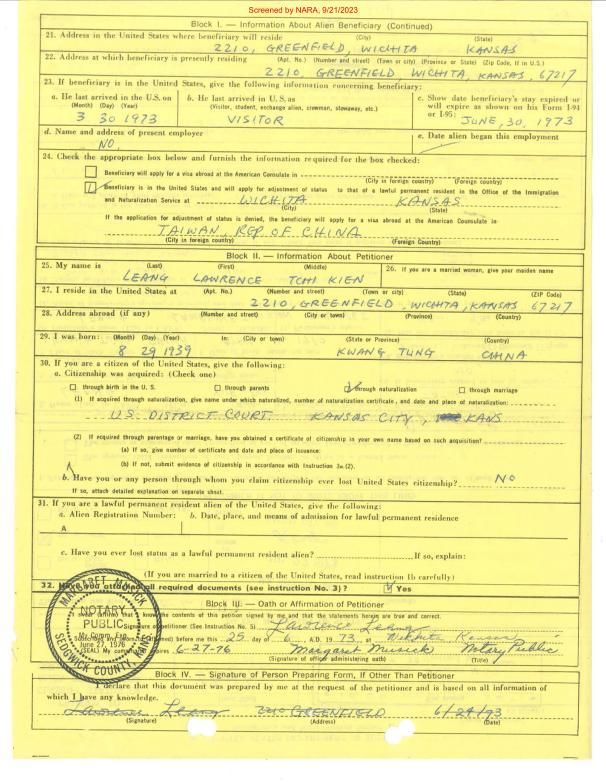 Screened by NARA, 9/21/2023
Block I. — Information About Alien Beneficiary (Continued)
21. Address in the United States where beneficiary will reside (City) (State)
2210, GREENFIELD, WICHITA KANSAS
22. Address at which beneficiary is presently residing (Apt. No.) (Number and street) (Town or city) (Province or State) (Zip Code, if in U.S.)
2210, GREENFIELD, WICHITA, KANSAS, 67217
23. If beneficiary is in the United States, give the following information concerning beneficiary:
a. He last arrived in the U.S. on (Month) (Day) (Year)
3 30 1973
b. He last arrived in U.S. as (Visitor, student, exchange alien, crewman, stowaway, etc.)
VISITOR
c. Show date beneficiary's stay expired or will expire as shown on his Form I-94 or I-95:
JUNE, 30, 1973
d. Name and address of present employer
NO.
e. Date alien began this employment
24. Check the appropriate box below and furnish the information required for the box checked:
Beneficiary will apply for a visa abroad at the American Consulate in
(City in foreign country) (Foreign country)
Beneficiary is in the United States and will apply for adjustment of status to that of a lawful permanent resident in the Office of the Immigration
and Naturalization Service at WICHITA KANSAS
(City) (State)
If the application for adjustment of status is denied, the beneficiary will apply for a visa abroad at the American Consulate in
TAIWAN, REP. OF CHINA
(City in foreign country) (Foreign Country)
Block II. — Information About Petitioner
25. My name is (Last) (First) (Middle)
LEANG LAWRENCE TCHI KIEN
26. If you are a married woman, give your maiden name
27. I reside in the United States at (Apt. No.) (Number and street) (Town or city) (State) (ZIP Code)
2210, GREENFIELD, WICHITA, KANSAS 67217
28. Address abroad (if any) (Number and street) (City or town) (Province) (Country)
29. I was born: (Month) (Day) (Year) In: (City or town) (State or Province) (Country)
8 29 1939 KWANG TUNG CHINA
30. If you are a citizen of the United States, give the following:
a. Citizenship was acquired: (Check one)
through birth in the U. S. through parents through naturalization through marriage
(1) If acquired through naturalization, give name under which naturalized, number of naturalization certificate, and date and place of naturalization:
U.S. DISTRICT COURT. KANSAS CITY, KANS
(2) If acquired through parentage or marriage, have you obtained a certificate of citizenship in your own name based on such acquisition?
(a) If so, give number of certificate and date and place of issuance:
(b) If not, submit evidence of citizenship in accordance with Instruction 3a.(2).
b. Have you or any person through whom you claim citizenship ever lost United States citizenship? NO
If so, attach detailed explanation on separate sheet.
31. If you are a lawful permanent resident alien of the United States, give the following:
a. Alien Registration Number: b. Date, place, and means of admission for lawful permanent residence
A
c. Have you ever lost status as a lawful permanent resident alien? If so, explain:
(If you are married to a citizen of the United States, read instruction 1b carefully)
32. Have you attached all required documents (see instruction No. 3)? Yes
Block III. — Oath or Affirmation of Petitioner
I swear (affirm) that I know the contents of this petition signed by me and that the statements herein are true and correct.
Signature of petitioner (See Instruction No. 5) Lawrence Leang
before me this 25 day of 6, A.D. 19 73, at Wichita Kansas
(SEAL) My commission expires 6-27-76 Margaret Musick Notary Public
(Signature of officer administering oath) (Title)
MARGARET MUSICK
NOTARY PUBLIC
My Comm. Exp. June 27, 1976
SEDGWICK COUNTY, KANS.
Block IV. — Signature of Person Preparing Form, If Other Than Petitioner
I declare that this document was prepared by me at the request of the petitioner and is based on all information of
which I have any knowledge.
Lawrence Leang 2210 GREENFIELD 6/24/93
(Signature) (Address) (Date)